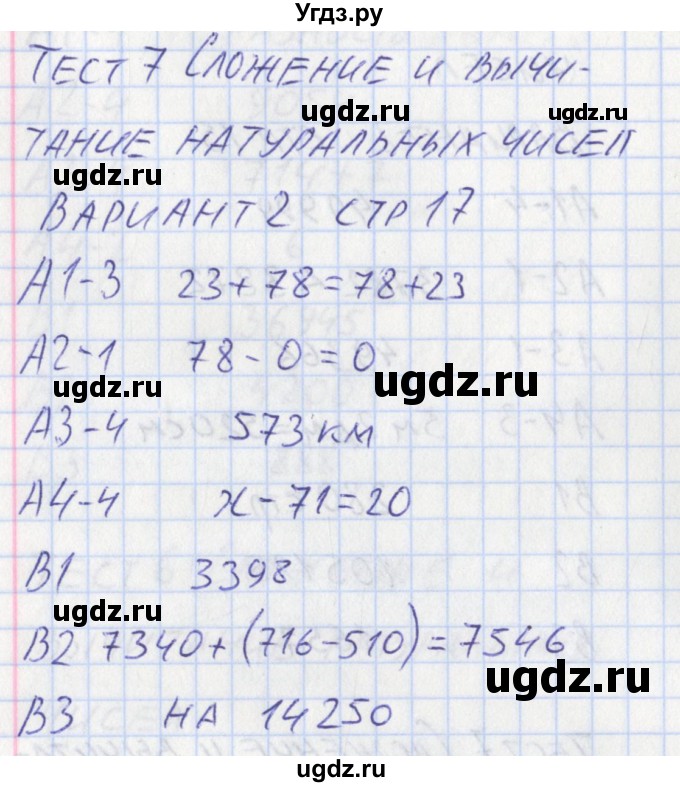 Угдз.ру
ТЕСТ 7 СЛОЖЕНИЕ И ВЫЧИ-
ugdz.ru ugdz.ru
ТАНИЕ НАТУРАЛЬНЫХ ЧИСЕЛ
ugdz.ru
ВАРИАНТ 2 СТР 17
А1-3 23+78=78+23
А2-1 78-0=0
ugdz.ru ugdz.ru
А3-4 573 км
А4-4 x-71=20
В1 3398
ugdz.ru
В2 7340+(716-510)=7546
ugdz.ru
В3 НА 14250
ugdz.ru